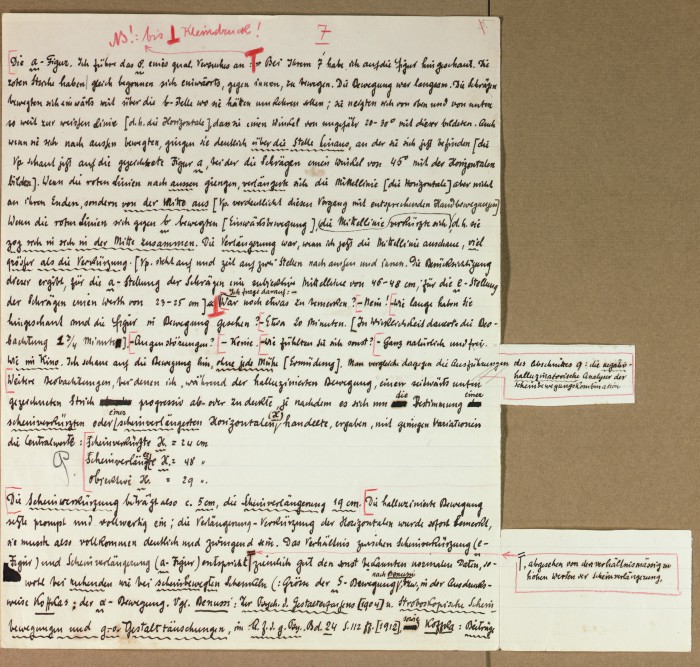 NB!: bis Kleindruck! 7
Die a-Figur. Ich führe das 6. eines qual. Versuches an: Bei Ihrem 7 habe ich auf die Figur hingeschaut. Die
roten Striche haben gleich begonnen sich einwärts, gegen innen, zu bewegen. Die Bewegung war langsam. Die Schrägen
bewegten sich einwärts weit über die b-Stelle wo sie hätten umkehren sollen; sie neigten sich von oben und von unten
so weit zur weissen Linie [d.h. die Horizontale], dass sie einen Winkel von ungefähr 20-30° mit dieser bildeten. Auch
wenn sie sich nach aussen bewegten, giengen sie deutlich über die Stelle hinaus, an der sie sich jetzt befinden [die
Vp. schaut jetzt auf die gezeichnete Figur a, bei der die Schrägen einen Winkel von 45° mit der Horizontalen
bilden]. Wenn die roten Linien nach aussen giengen, verlängerte sich die Mittellinie [die Horizontale] aber nicht
an ihren Enden, sondern von der Mitte aus [Vp. verdeutlicht diesen Vorgang mit entsprechenden Handbewegungen]
Wenn die roten Linien sich gegen b bewegten [Einwärtsbewegung] (die Mittellinie verkürzte sich) d.h. sie
zog sich in sich in der Mitte zusammen. Die Verlängerung war, wenn ich jetzt die Mittellinie anschaue, viel
größer als die Verkürzung. [Vp. sieht auf und zeigt auf zwei Stellen nach aussen und innen. Die Berücksichtigung
dieser ergibt, für die a-Stellung der Schrägen eine subjektive Mittellinie von 46-48 cm, für die c-Stellung
der Schrägen einen Wert von 23-25 cm] Ich frage darauf: - War noch etwas zu bemerken? - Nein! - Wie lange haben Sie
hingeschaut und die Figur in Bewegung gesehen? - Etwa 20 Minuten. [In Wirklichkeit dauerte die Beo-
bachtung 1¾ Minuten]. - Augenstörungen? - Keine. - Wie fühlten Sie sich sonst? - Ganz natürlich und frei.
Wie im Kino. Ich schaue auf die Bewegung hin, ohne jede Mühe [Ermüdung]. Man vergleiche dagegen die Ausführungen des Abschnittes 9: die negativ-
halluzinatorische Analyse der
Scheinbewegungskombination
Weitere Beobachtungen, bei denen ich, während der halluzinierten Bewegung, einen seitwärts unten
gezeichneten Strich progressiv ab- oder zudeckte, je nachdem es sich um die Bestimmung einer
scheinverkürzten oder einer scheinverlängerten Horizontalen (x) handelte, ergaben, mit geringen Variationen
die Centralwerte: Scheinverkürzte H. = 24 cm
Scheinverlängte H. = 48 "
Objective H. = 29 ".
Die Scheinverkürzung beträgt also c. 5 cm, die Scheinverlängerung 19 cm. Die halluzinierte Bewegung
setzte prompt und vollwertig ein; die Verlängerung-Verkürzung der Horizontalen wurde sofort bemerkt,
sie musste also vollkommen deutlich und zwingend sein. Das Verhältnis zwischen Scheinverkürzung (c-
Figur) und Scheinverlängerung (a-Figur) entspricht ziemlich gut den sonst bekannten normalen Daten, so-
T, abgesehen von den verhältnismässig zu
hohen Werten der Scheinverlängerung.
wohl bei ruhenden wie bei scheinbewegten Schenkeln (: Grösse der S-Bewegung nach Benussi, bzw. in der Ausdrucks-
weise Koffkas; der α-Bewegung. Vgl. Benussi: Zur Psych. d. Gestalterfassens [1904] u. Stroboskopische Schein
bewegungen und g.-o. Gestalttäuschungen, in A. f. d. g. Psy. Bd. 24 S. 112 ff. [1912], sowie Koffka: Beiträge